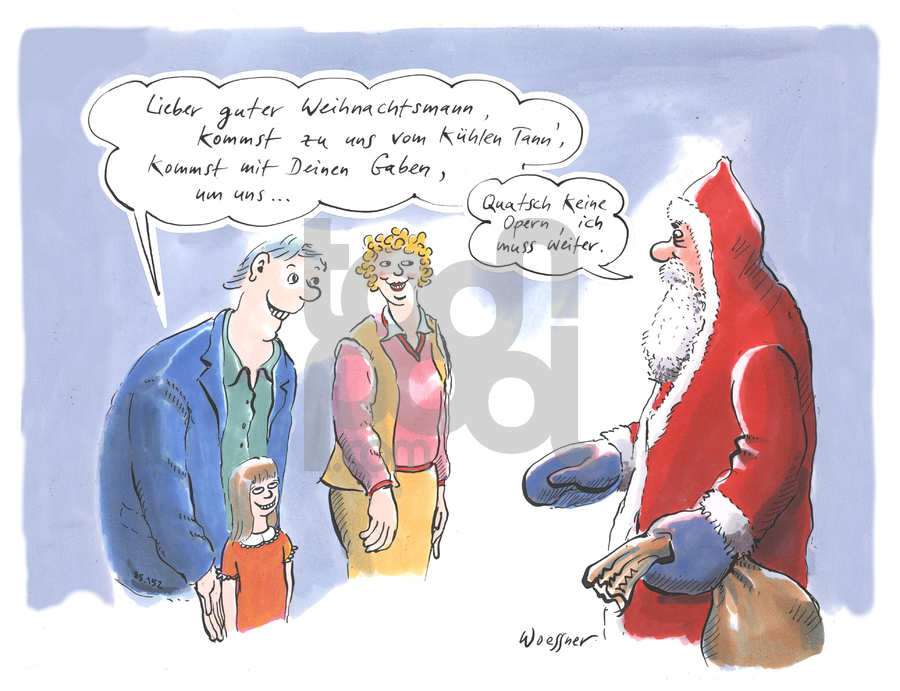 Lieber guter Weihnachtsmann,
kommst zu uns vom kühlen Tann',
kommst mit Deinen Gaben,
um uns...
Quatsch keine
Opern, ich
muss weiter.
toon
pool
.com
95.152
Woessner